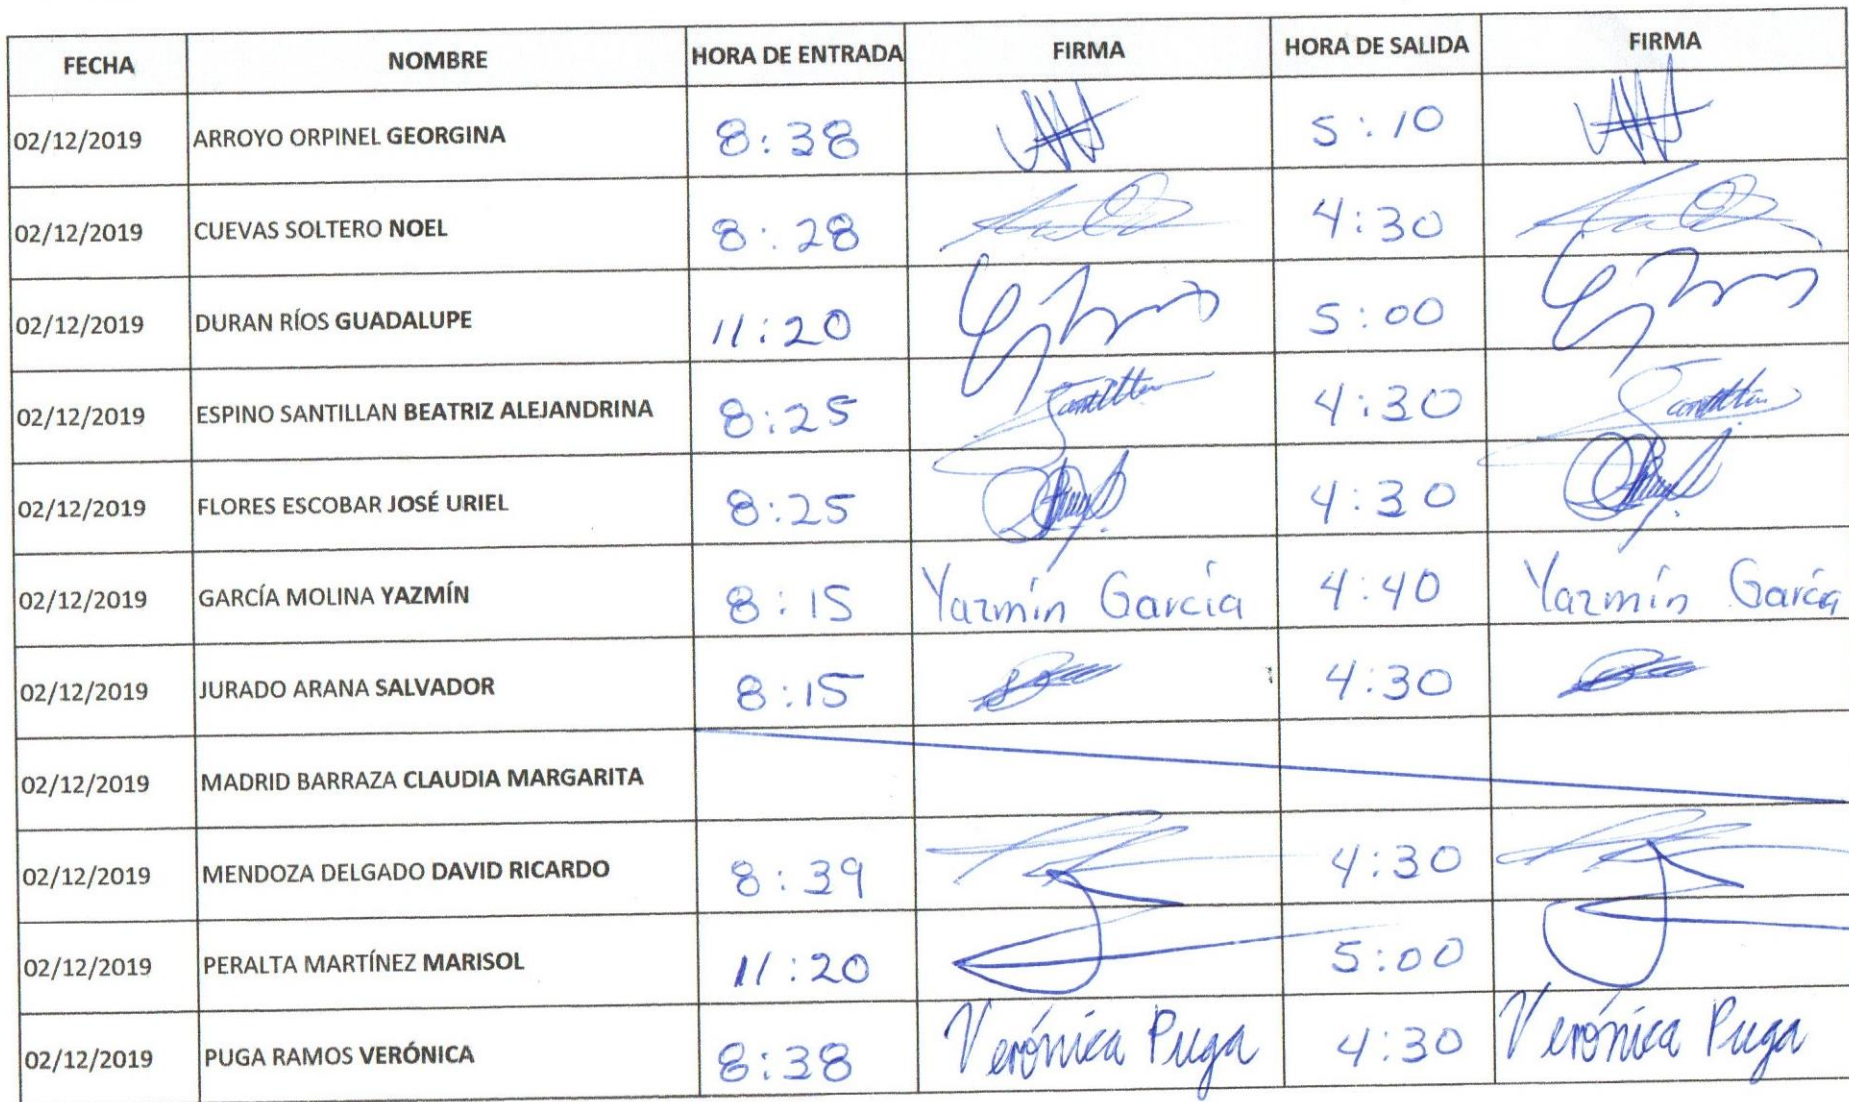 FECHA NOMBRE HORA DE ENTRADA FIRMA HORA DE SALIDA FIRMA
02/12/2019 ARROYO ORPINEL GEORGINA 8:38 5:10
02/12/2019 CUEVAS SOLTERO NOEL 8:28 4:30
02/12/2019 DURAN RÍOS GUADALUPE 11:20 5:00
02/12/2019 ESPINO SANTILLAN BEATRIZ ALEJANDRINA 8:25 4:30
02/12/2019 FLORES ESCOBAR JOSÉ URIEL 8:25 4:30
02/12/2019 GARCÍA MOLINA YAZMÍN 8:15 Yazmín García 4:40 Yazmín García
02/12/2019 JURADO ARANA SALVADOR 8:15 4:30
02/12/2019 MADRID BARRAZA CLAUDIA MARGARITA
02/12/2019 MENDOZA DELGADO DAVID RICARDO 8:39 4:30
02/12/2019 PERALTA MARTÍNEZ MARISOL 11:20 5:00
02/12/2019 PUGA RAMOS VERÓNICA 8:38 Verónica Puga 4:30 Verónica Puga